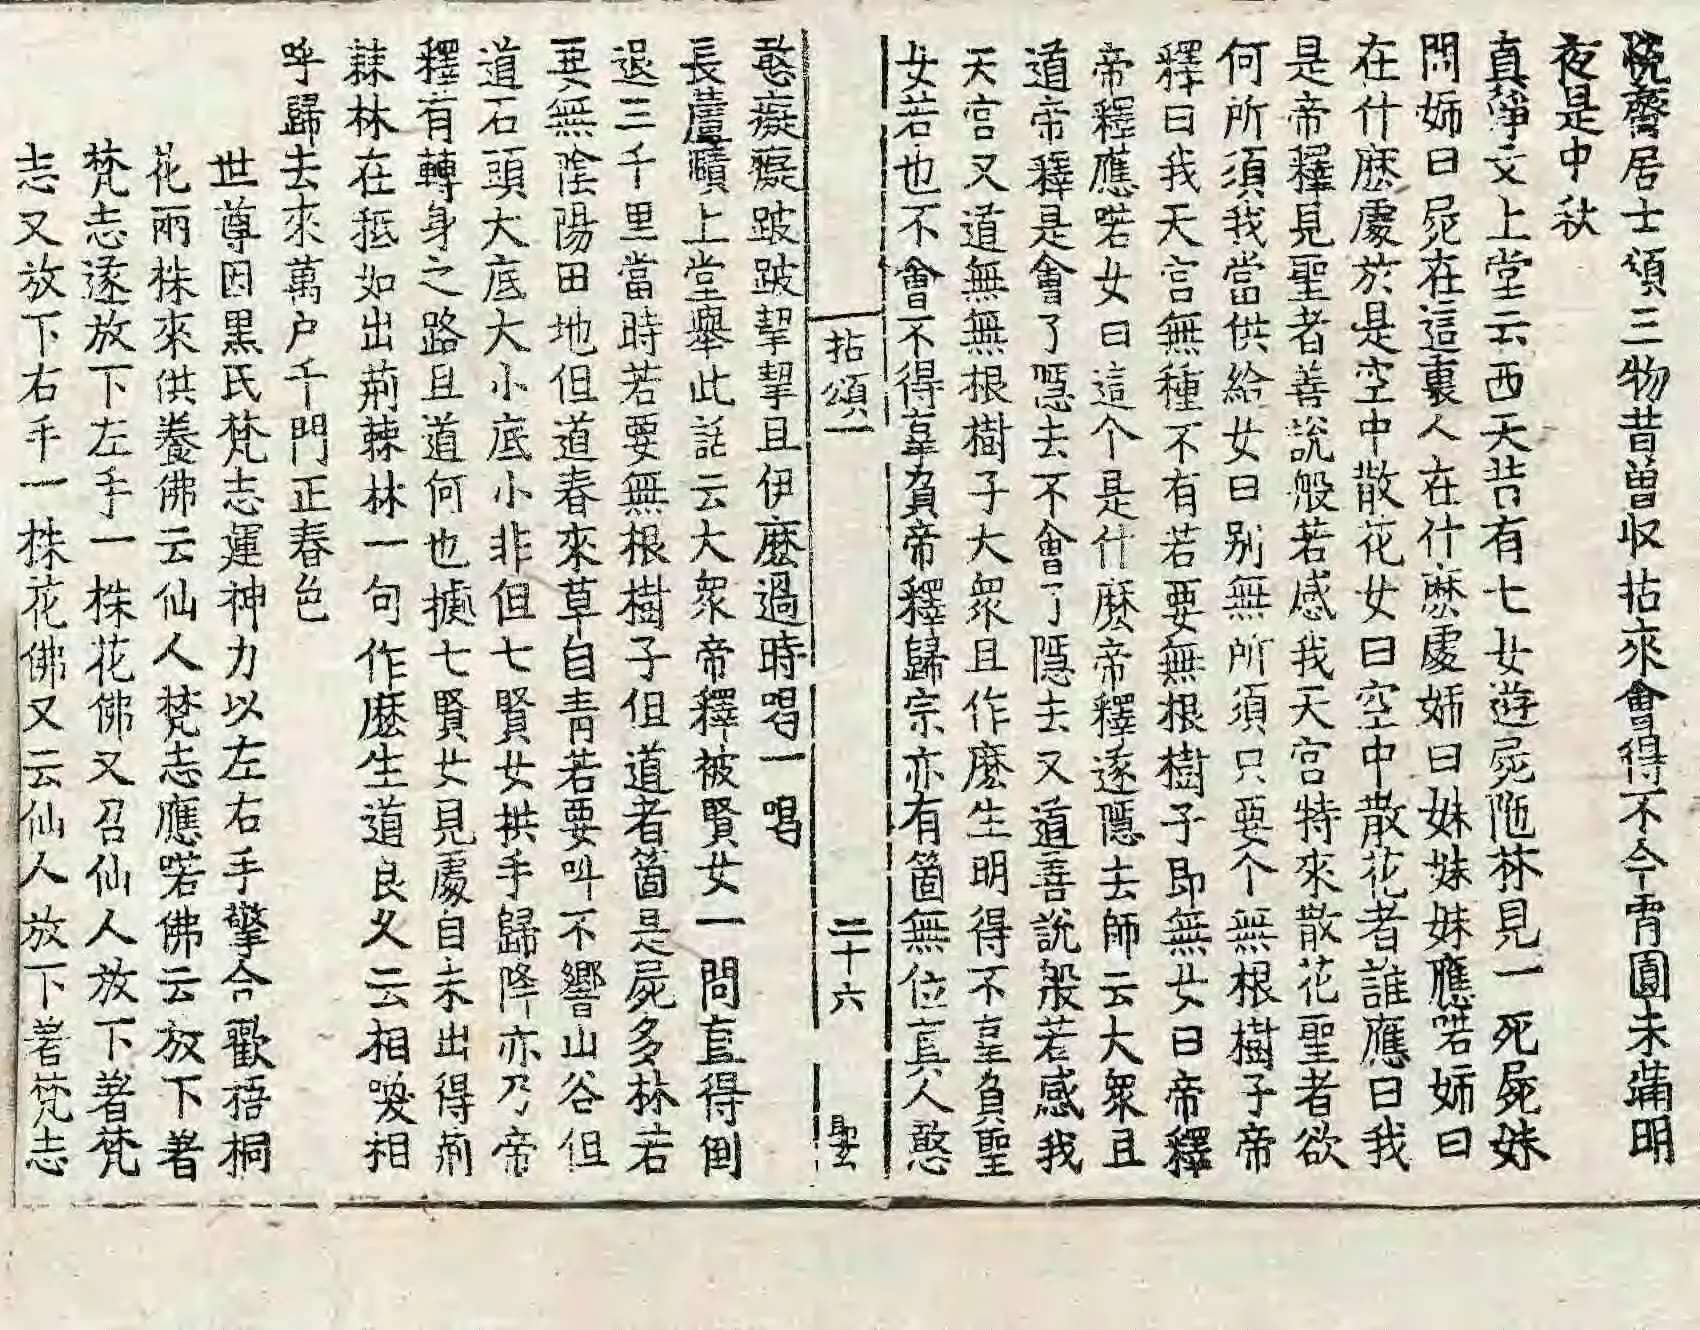 悅齋居士頌三物昔曽収拈來會得不今宵圓未滿明
夜是中秋
真淨文上堂云西天昔有七女遊屍陁林見一死屍妹
問姉曰屍在這裏人在什麽處姉曰妹妹妹應喏姉曰
在什麽處於是空中散花女曰空中散花者誰應曰我
是帝釋見聖者善說般若感我天宫特來散花聖者欲
何所須我當供給女曰别無所須只要个無根樹子帝
釋曰我天宫無種不有若要無根樹子即無女曰帝釋
帝釋應喏女曰這个是什麽帝釋遂隱去師云大衆且
道帝釋是會了隱去不會了隱去又道善說般若感我
天宫又道無無根樹子大衆且作麽生明得不辜負聖
女若也不會不得辜負帝釋歸宗亦有箇無位真人憨
拈頌一
二十六
憨癡癡跛跛挈挈且伊麽過時喝一喝
長蘆賾上堂舉此話云大衆帝釋被賢女一問直得倒
退三千里當時若要無根樹子但道者箇是屍多林若
要無陰陽田地但道春來草自青若要叫不響山谷但
道石頭大底大小底小非但七賢女拱手歸降亦乃帝
釋有轉身之路且道何也據七賢女見處自未出得荊
棘林在秪如出荊棘林一句作麽生道良久云相喚相
呼歸去來萬户千門正春色
世尊因黒氏梵志運神力以左右手擎合歡梧桐
花兩株來供養佛云仙人梵志應喏佛云放下著
梵志遂放下左手一株花佛又召仙人放下著梵
志又放下右手一株花佛又云仙人放下著梵志